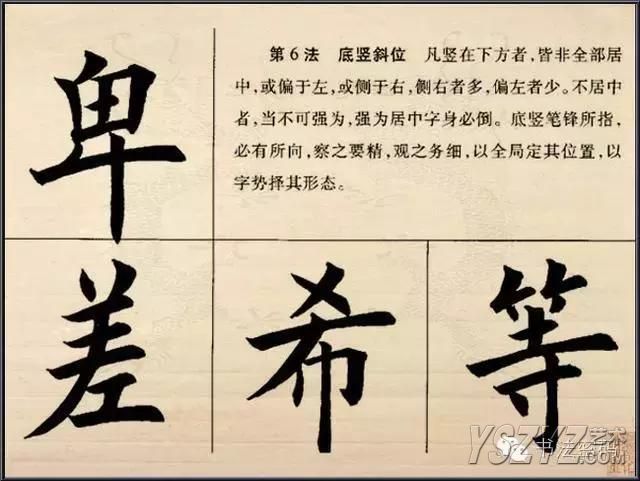 卑
第6法 底竖斜位 凡竖在下方者,皆非全部居
中,或偏于左,或侧于右,侧右者多,偏左者少。不居中
者,当不可强为,强为居中字身必倒。底竖笔锋所指,
必有所向,察之要精,观之务细,以全局定其位置,以
字势择其形态。
差
希
等
YSZYZ艺术
.COM